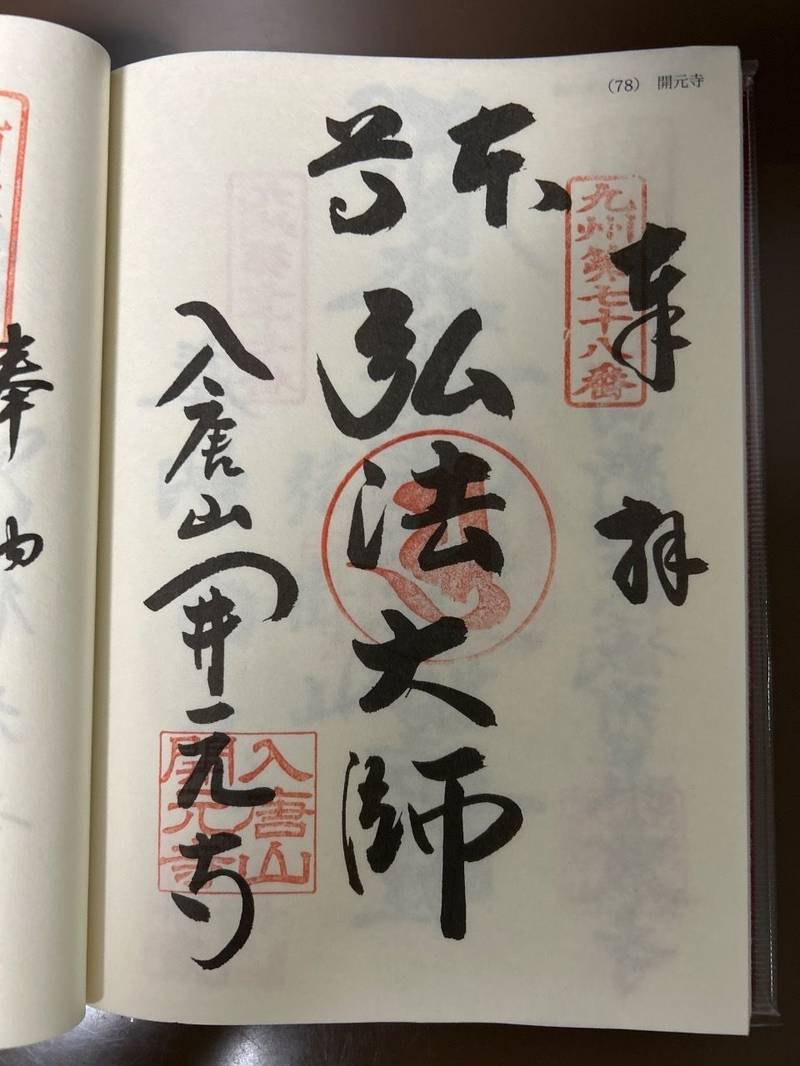 (78) 開元寺
奉拝
九州第七十八番
本尊
弘法大師
入唐山開元寺
入唐山
開元寺
奉